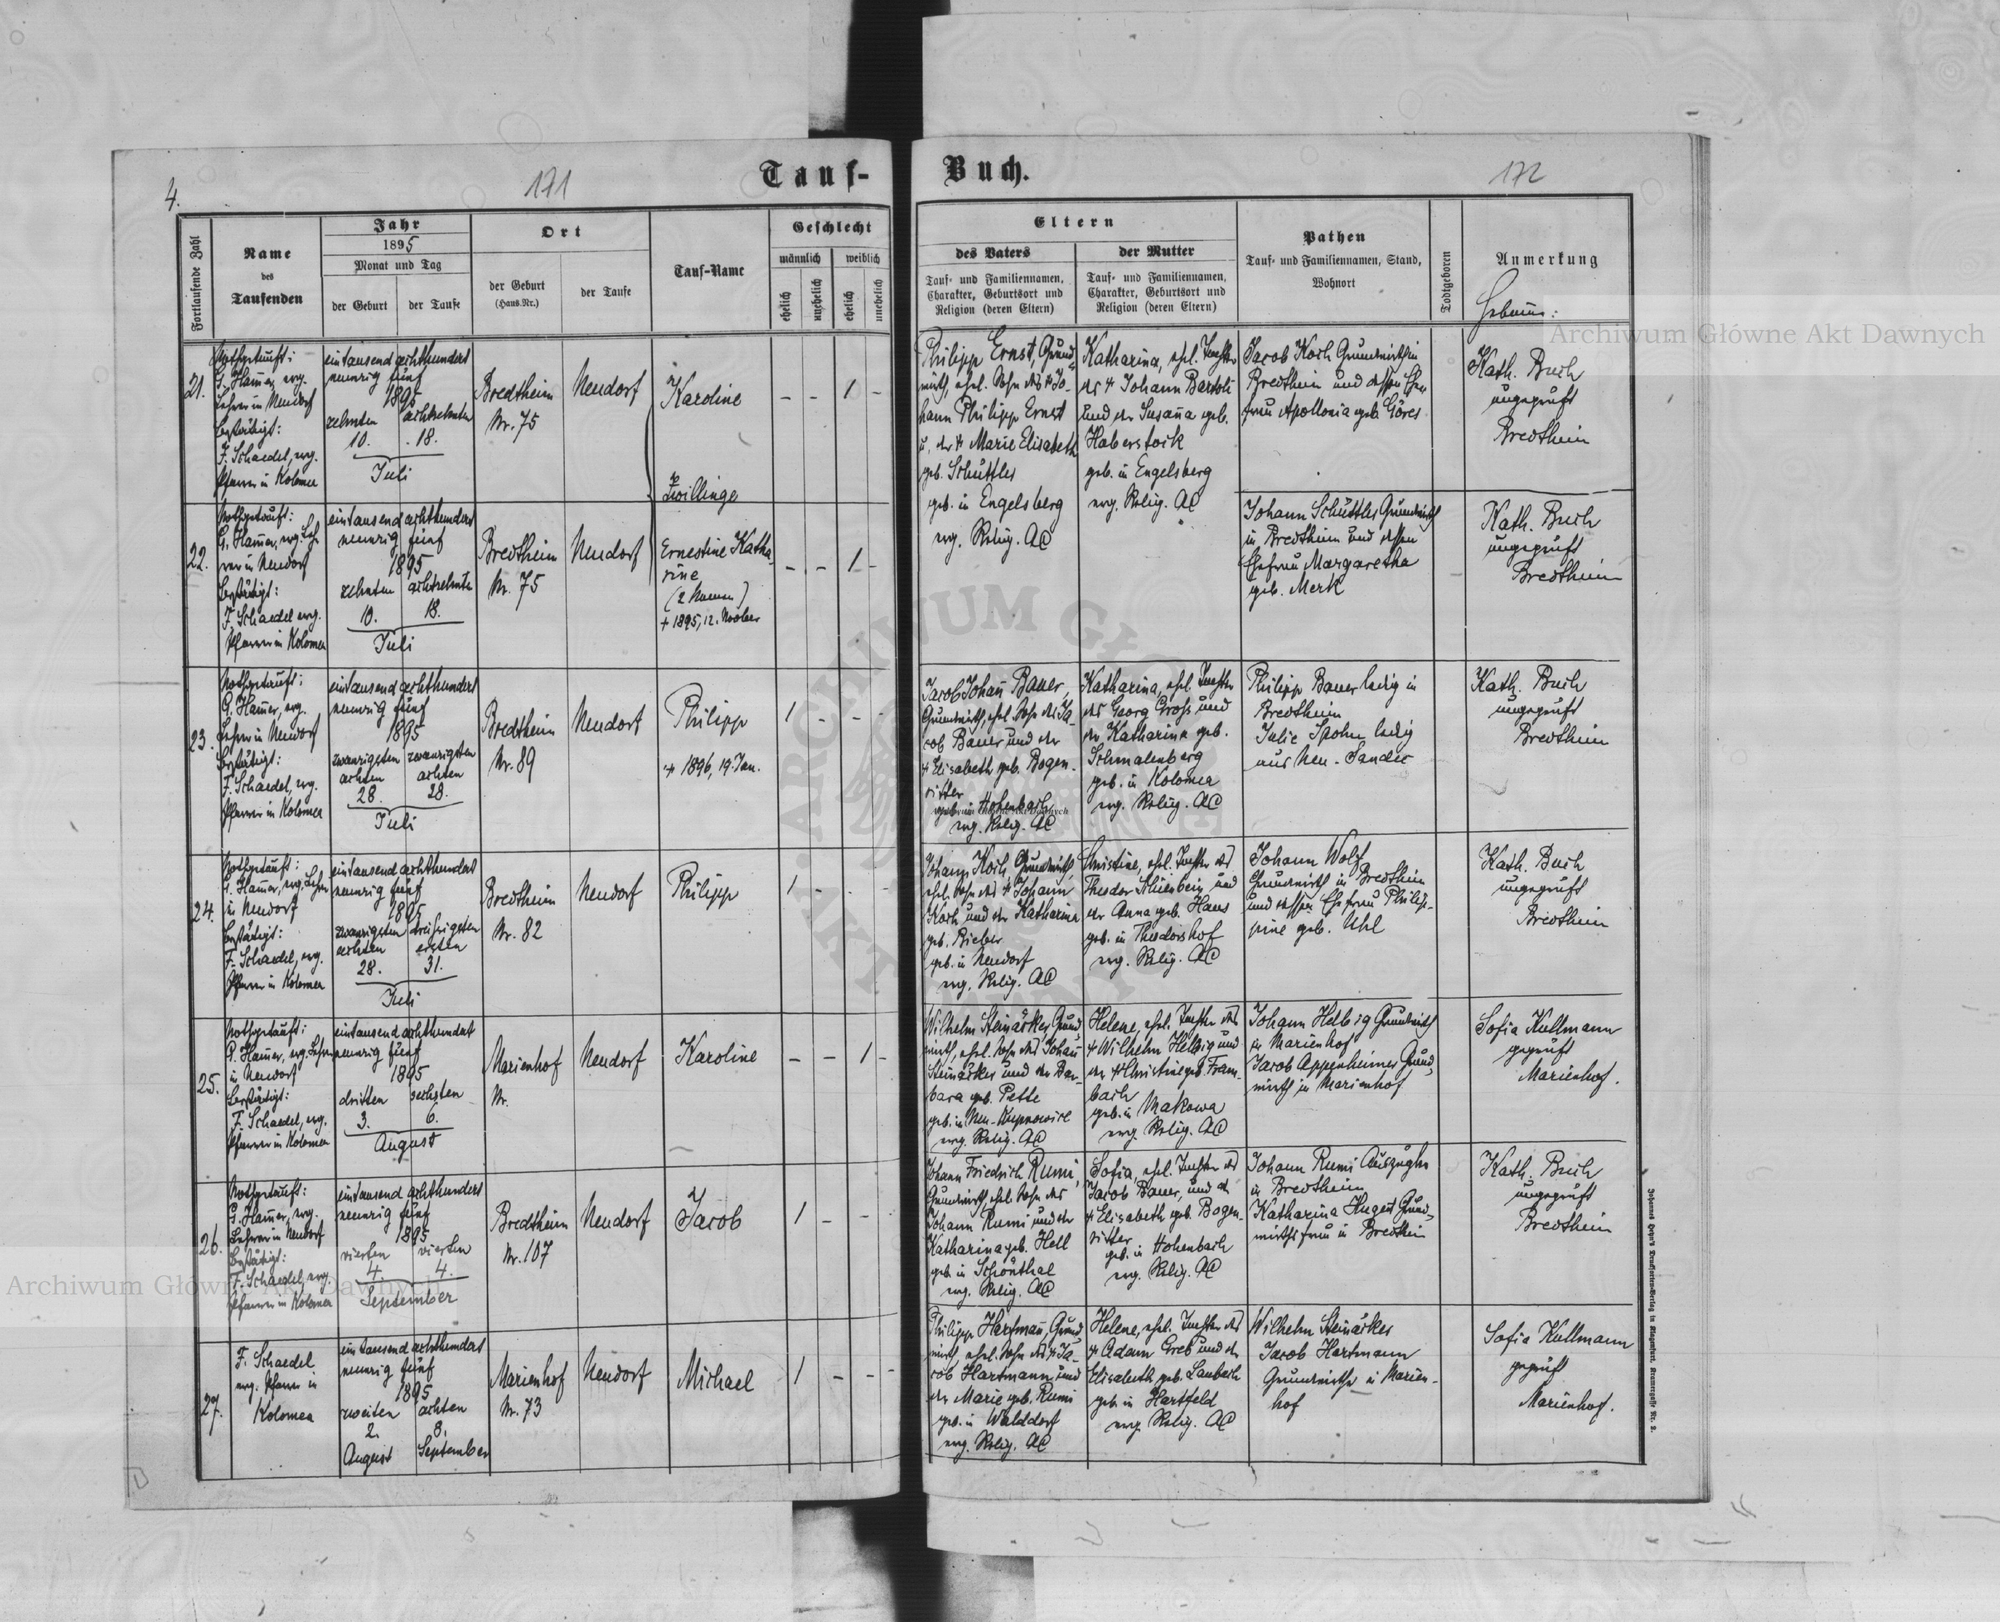 4.
171
Tauf-
Buch.
172
Fortlaufende Zahl
Name
des
Taufenden
Jahr
1895
Monat und Tag
der Geburt
der Taufe
Ort
der Geburt
(Haus-Nr.)
der Taufe
Tauf-Name
Geschlecht
männlich
weiblich
ehelich
unehelich
ehelich
unehelich
Eltern
des Vaters
Tauf- und Familiennamen,
Charakter, Geburtsort und
Religion (deren Eltern)
der Mutter
Tauf- und Familiennamen,
Charakter, Geburtsort und
Religion (deren Eltern)
Pathen
Tauf- und Familiennamen, Stand,
Wohnort
Todtgeboren
Anmerkung
Hebame:
21.
Nothgetauft:
G. Hamer, evg.
Lehrer in Neudorf
Bestätigt:
F. Schaedel, evg.
Pfarrer in Kolomea
eintausend achthundert
neunzig fünf
1895
zehnten achtzehnten
10. 18.
Juli
Bredtheim
Nr. 75
Neudorf
Karoline
Zwillinge
- - 1 -
Philipp Ernst, Grund-
wirth, ehel. Sohn des † Jo-
hann Philipp Ernst
u. der † Marie Elisabeth
geb. Schüttler
geb. in Engelsberg
evg. Relig. AC
Katharina, ehel. Tochter
des † Johann Bartoli
und der Susana geb.
Haberstock
geb. in Engelsberg
evg. Relig. AC
Jacob Koch Grundwirth in
Bredtheim und dessen Ehe
frau Apollonia geb. Göres
Kath. Buch
ungeprüft
Bredtheim
22.
Nothgetauft:
G. Hamer, evg. Leh-
rer in Neudorf
Bestätigt:
F. Schaedel evg.
Pfarrer in Kolomea
eintausend achthundert
neunzig fünf
1895
zehnten achtzehnten
10. 18.
Juli
Bredtheim
Nr. 75
Neudorf
Ernestine Katha-
rine
(2 Namen)
† 1895, 12. November
- - 1 -
Johann Schüttler Grundwirth
in Bredtheim und dessen
Ehefrau Margaretha
geb. Merk
Kath. Buch
ungeprüft
Bredtheim
23.
Nothgetauft:
G. Hamer, evg.
Lehrer in Neudorf
Bestätigt:
F. Schaedel, evg.
Pfarrer in Kolomea
eintausend achthundert
neunzig fünf
1895
zwanzigsten zwanzigsten
achten achten
28. 28.
Juli
Bredtheim
Nr. 89
Neudorf
Philipp
† 1896, 19. Jan.
1 - - -
Jacob Johan Bauer,
Grundwirth, ehel. Sohn des Ja-
cob Bauer und der
† Elisabeth geb. Bogen-
ritter
geb. in Hohenbach
evg. Relig. AC
Katharina, ehel. Tochter
des Georg Groß und
der Katharina geb.
Schmalenberg
geb. in Kolomea
evg. Relig. AC
Philipp Bauer ledig in
Bredtheim
Julie Spohn ledig
aus Neu-Sandec
Kath. Buch
ungeprüft
Bredtheim
24.
Nothgetauft:
G. Hamer, evg. Lehrer
in Neudorf
Bestätigt:
F. Schaedel, evg.
Pfarrer in Kolomea
eintausend achthundert
neunzig fünf
1895
zwanzigsten dreißigsten
achten ersten
28. 31.
Juli
Bredtheim
Nr. 82
Neudorf
Philipp
1 - - -
Johann Koch, Grundwirth,
ehel. Sohn des † Johann
Koch und der Katharina
geb. Bieber
geb. in Neudorf
evg. Relig. AC
Christine, ehel. Tochter des
Theodor und
der Anna geb. Haus
geb. in Theodorshof
evg. Relig. AC
Johann Wolf
Grundwirth in Bredtheim
und dessen Ehefrau Philip-
pine geb. Uhl
Kath. Buch
ungeprüft
Bredtheim
25.
Nothgetauft:
G. Hamer, evg. Lehrer
in Neudorf
Bestätigt:
F. Schaedel, evg.
Pfarrer in Kolomea
eintausend achthundert
neunzig fünf
1895
dritten sechsten
3. 6.
August
Marienhof
Nr.
Neudorf
Karoline
- - 1 -
Wilhelm Steinäcker Grund
wirth, ehel. Sohn des Johan
Steinäcker und der Bar-
bara geb. Pette
geb. in Neu-Kupnowice
evg. Relig. AC
Helene, ehel. Tochter des
† Wilhelm Helbig und
der † Christine geb. Fram-
bach
geb. in Makowa
evg. Relig. AC
Johann Helbig Grundwirth
in Marienhof
Jacob Appenheimer Grund-
wirth in Marienhof
Sofia Kullmann
geprüft
Marienhof.
26.
Nothgetauft:
G. Hamer, evg.
Lehrer in Neudorf
Bestätigt:
F. Schaedel, evg.
Pfarrer in Kolomea
eintausend achthundert
neunzig fünf
1895
vierten vierten
4. 4.
September
Bredtheim
Nr. 107
Neudorf
Jacob
1 - - -
Johann Friedrich Rumi,
Grundwirth, ehel. Sohn des
Johann Rumi und der
Katharina geb. Hell
geb. in Schönthal
evg. Relig. AC
Sofia, ehel. Tochter des
Jacob Bauer, und der
† Elisabeth geb. Bogen-
ritter
geb. in Hohenbach
evg. Relig. AC
Johann Rumi Auszügler
in Bredtheim
Katharina Hugert Grund-
wirthsfrau in Bredtheim
Kath. Buch
ungeprüft
Bredtheim
27.
F. Schaedel
evg. Pfarrer in
Kolomea
eintausend achthundert
neunzig fünf
1895
zweiten achten
2. 8.
August September
Marienhof
Nr. 73
Neudorf
Michael
1 - - -
Philipp Hartman, Grund
wirth, ehel. Sohn des † Ja-
cob Hartmann und
der Marie geb. Rumi
geb. in Walddorf
evg. Relig. AC
Helene, ehel. Tochter des
† Adam Greb und der
Elisabeth geb. Laubach
geb. in Hartfeld
evg. Relig. AC
Wilhelm Steinäcker
Jacob Hartmann
Grundwirthe in Marien-
hof
Sofia Kullmann
geprüft
Marienhof.
Archiwum Główne Akt Dawnych
Archiwum Główne Akt Dawnych